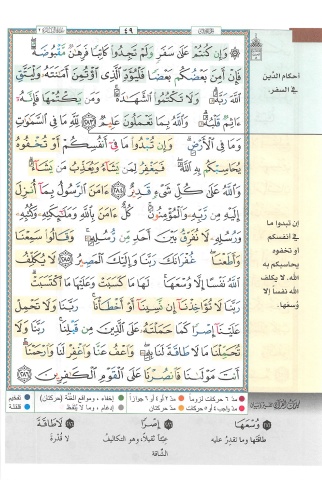 ٤٩
۞ وَإِن كُنتُمْ عَلَىٰ سَفَرٍ وَلَمْ تَجِدُوا۟ كَاتِبًا فَرِهَـٰنٌ مَّقْبُوضَةٌ
فَإِنْ أَمِنَ بَعْضُكُم بَعْضًا فَلْيُؤَدِّ ٱلَّذِى ٱؤْتُمِنَ أَمَـٰنَتَهُۥ وَلْيَتَّقِ
ٱللَّهَ رَبَّهُۥ وَلَا تَكْتُمُوا۟ ٱلشَّهَـٰدَةَ وَمَن يَكْتُمْهَا فَإِنَّهُۥٓ
ءَاثِمٌ قَلْبُهُۥ وَٱللَّهُ بِمَا تَعْمَلُونَ عَلِيمٌ ٢٨٣ لِّلَّهِ مَا فِى ٱلسَّمَـٰوَٰتِ
وَمَا فِى ٱلْأَرْضِ وَإِن تُبْدُوا۟ مَا فِىٓ أَنفُسِكُمْ أَوْ تُخْفُوهُ
يُحَاسِبْكُم بِهِ ٱللَّهُ فَيَغْفِرُ لِمَن يَشَآءُ وَيُعَذِّبُ مَن يَشَآءُ
وَٱللَّهُ عَلَىٰ كُلِّ شَىْءٍ قَدِيرٌ ٢٨٤ ءَامَنَ ٱلرَّسُولُ بِمَآ أُنزِلَ
إِلَيْهِ مِن رَّبِّهِۦ وَٱلْمُؤْمِنُونَ كُلٌّ ءَامَنَ بِٱللَّهِ وَمَلَـٰٓئِكَتِهِۦ وَكُتُبِهِۦ
وَرُسُلِهِۦ لَا نُفَرِّقُ بَيْنَ أَحَدٍ مِّن رُّسُلِهِۦ وَقَالُوا۟ سَمِعْنَا
وَأَطَعْنَا غُفْرَانَكَ رَبَّنَا وَإِلَيْكَ ٱلْمَصِيرُ ٢٨٥ لَا يُكَلِّفُ
ٱللَّهُ نَفْسًا إِلَّا وُسْعَهَا لَهَا مَا كَسَبَتْ وَعَلَيْهَا مَا ٱكْتَسَبَتْ
رَبَّنَا لَا تُؤَاخِذْنَآ إِن نَّسِينَآ أَوْ أَخْطَأْنَا رَبَّنَا وَلَا تَحْمِلْ
عَلَيْنَآ إِصْرًا كَمَا حَمَلْتَهُۥ عَلَى ٱلَّذِينَ مِن قَبْلِنَا رَبَّنَا وَلَا
تُحَمِّلْنَا مَا لَا طَاقَةَ لَنَا بِهِۦ وَٱعْفُ عَنَّا وَٱغْفِرْ لَنَا وَٱرْحَمْنَآ
أَنتَ مَوْلَىٰنَا فَٱنصُرْنَا عَلَى ٱلْقَوْمِ ٱلْكَـٰفِرِينَ
أحكام الدَّين
في السفر.
إن تبدوا ما
في أنفسكم
أو تخفوه
يحاسبكم به
الله. لا يكلف
الله نفساً إلا
وُسعَها.
مدّ ٦ حركات لزوماً مدّ ٢ أو ٤ أو ٦ جوازاً إخفاء، ومواقع الغنّة (حركتان) تفخيم
مدّ واجب ٤ أو ٥ حركات مدّ حركتان إدغام، وما لا يُلفظ قلقلة
وُسْعَهَا إِصْرًا لَا طَاقَةَ
طاقتها وما تقدِرُ عليه عِبْئاً ثقيلاً، وهو التكاليف لا قُدْرَةَ
الشَّاقة